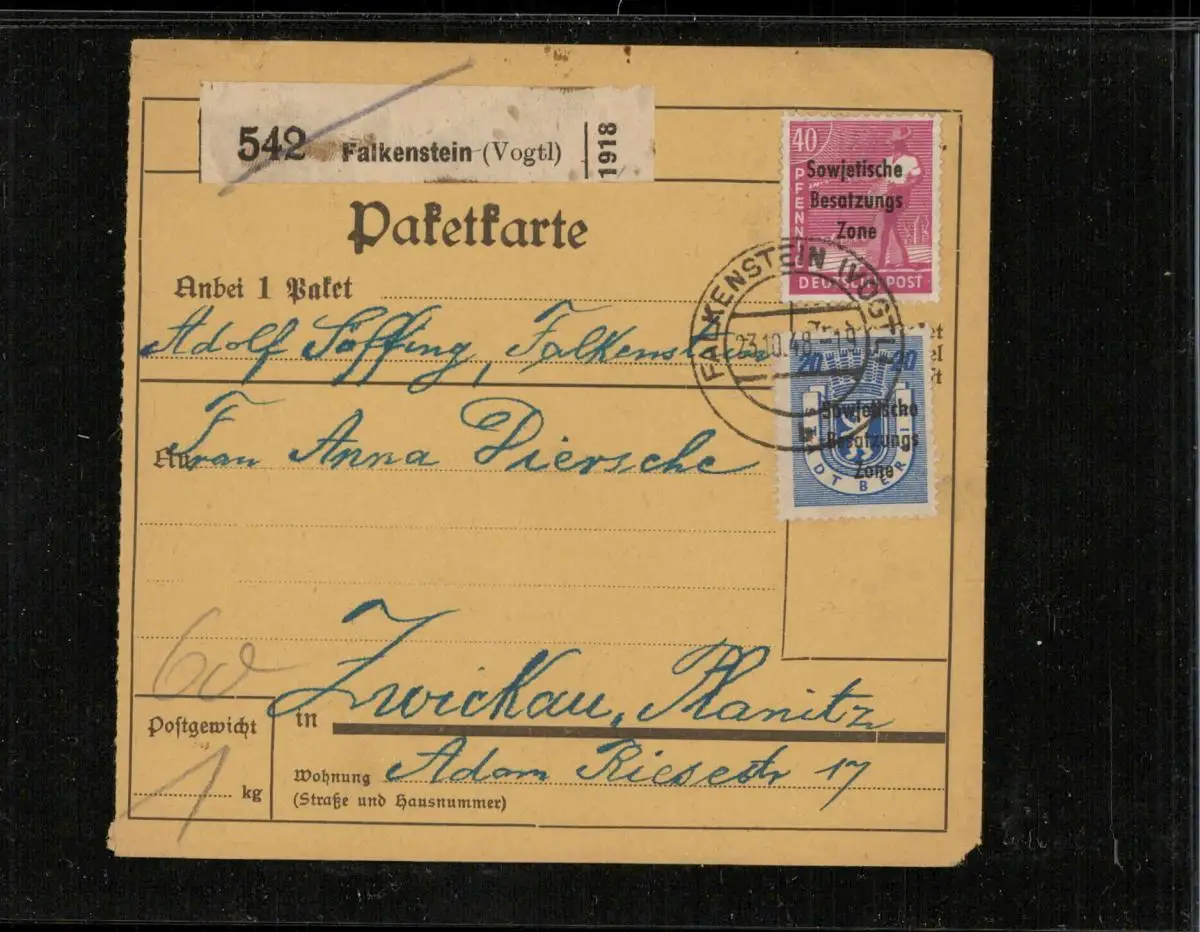 542 Falkenstein (Vogtl) 1918
Paketkarte
Anbei 1 Paket
Adolf Söffing, Falkenstein
An Frau Anna Diersche
60
Zwickau, Planitz
in
Postgewicht
1 kg
Wohnung Adam Riesestr 17
(Straße und Hausnummer)
40
PFENNIG
Sowjetische
Besatzungs
Zone
DEUTSCHE POST
FALKENSTEIN (VOGTL)
23.10.48
20 20
Sowjetische
Besatzungs
Zone